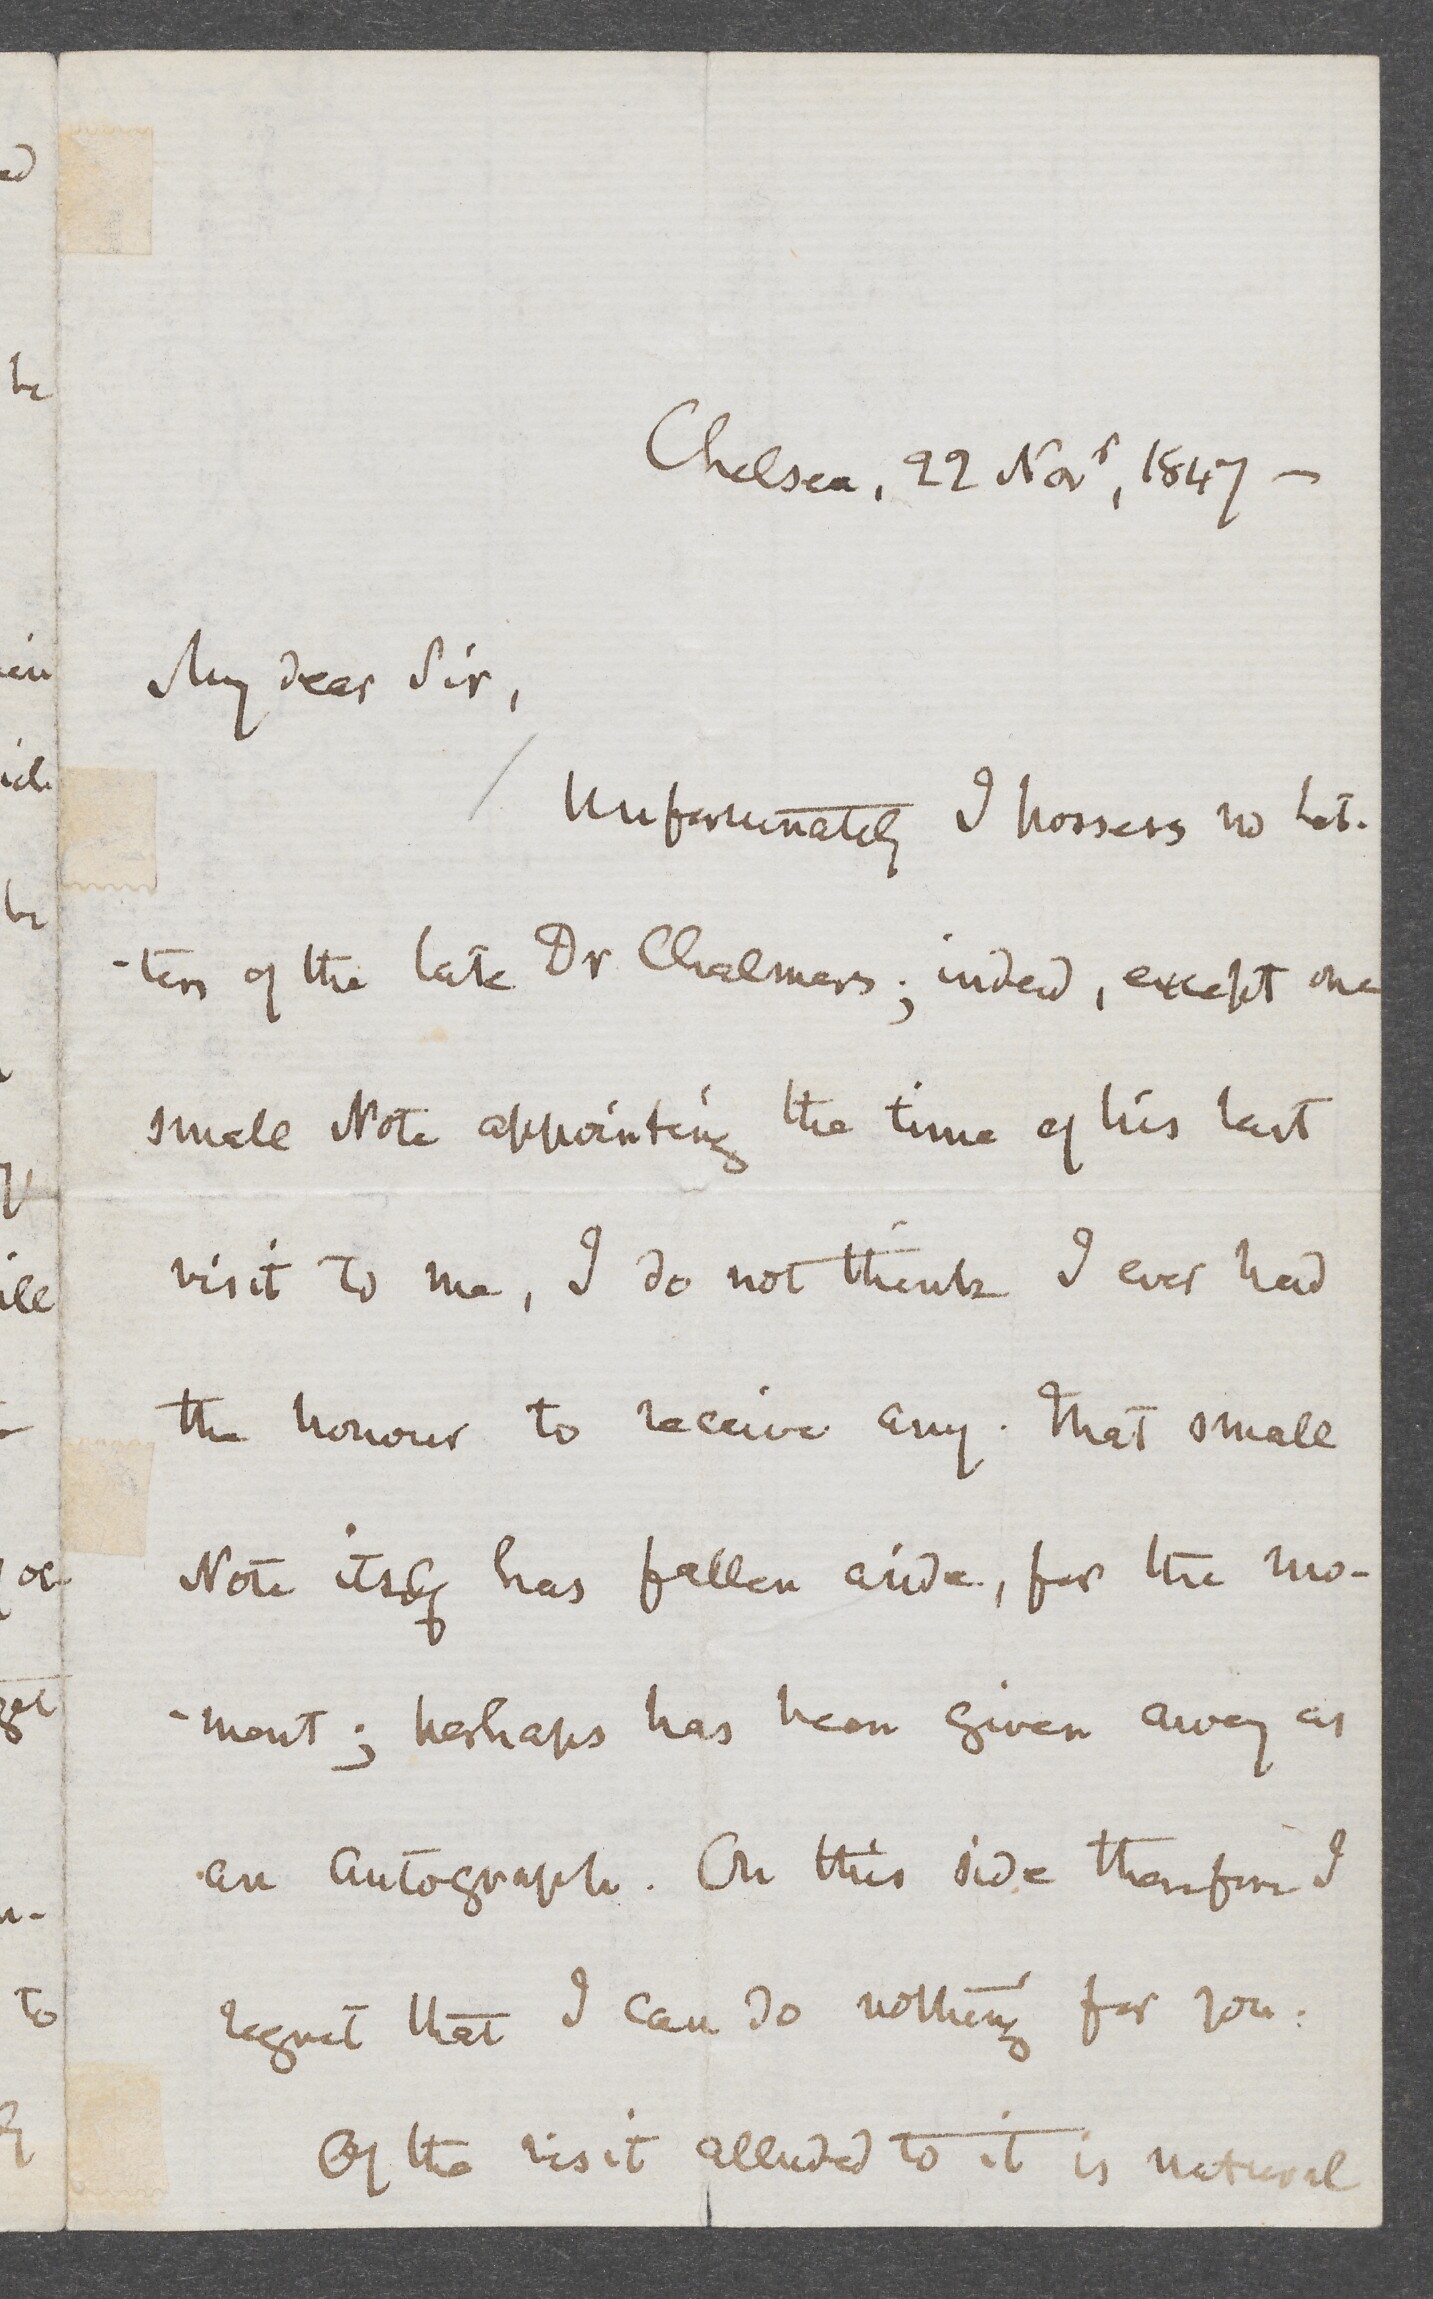 Chelsea, 22 Novr, 1847 –
My dear Sir,
Unfortunately I possess no let-
-ters of the late Dr Chalmers; indeed, except one
small Note appointing the time of his last
visit to me, I do not think I ever had
the honour to receive any. That small
Note itself has fallen aside, for the mo-
-ment; perhaps has been given away as
an Autograph. On this side therefore I
regret that I can do nothing for you.
Of the visit alluded to it is natural